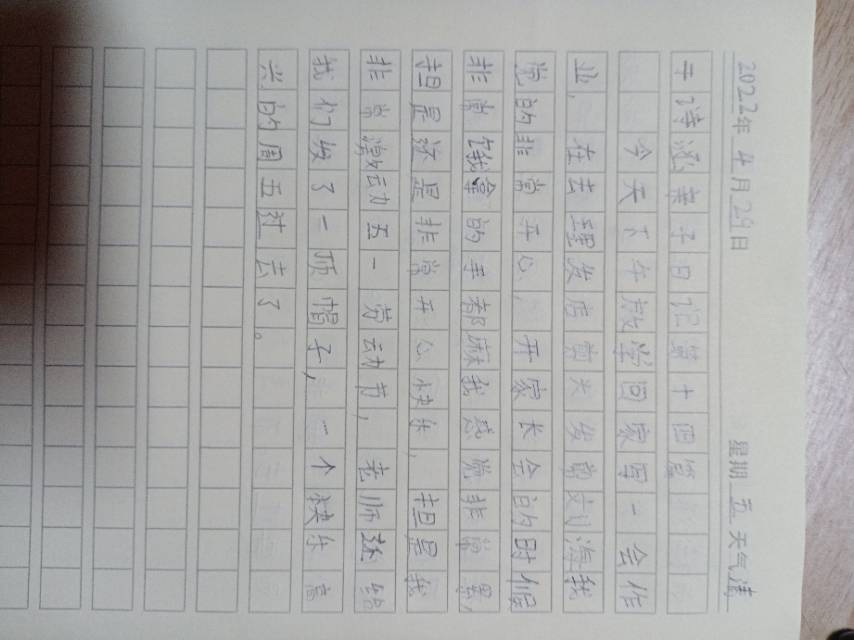 2022年 4月29日 星期 五 天气 清
于诗涵亲子日记第十四篇
今天下午放学回家写一会作
业，在去理发店剪头发剪刘海我
觉的非常开心，开家长会的时候
非常饿拿的手都麻我感觉非常累，
担是这是非常开心快乐，担是我
非常激动五一劳动节，老师还给
我们发了一顶帽子，一个快乐高
兴的周五过去了。